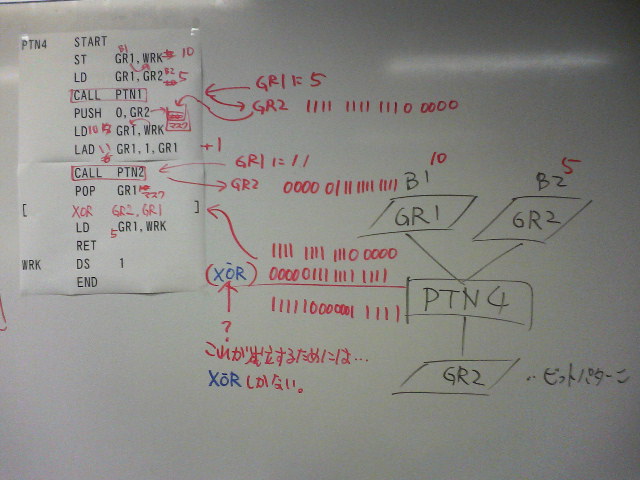 PTN4 START
B1
ST GR1,WRK 10
B2
LD GR1,GR2 5
CALL PTN1
PUSH 0,GR2
LD 10 GR1,WRK
LAD GR1,1,GR1 +1
CALL PTN2
POP GR1
[ XOR GR2,GR1 ]
LD GR1,WRK
5
RET
WRK DS 1
END
GR1に5
GR2 1111 1111 1110 0000
GR1に11
GR2 0000 0111 1111 1111
1111 1111 1110 0000
0000 0111 1111 1111
(XOR)
1111 1000 0001 1111
?
これが成立するためには…
XORしかない。
10
B1
5
B2
GR1
GR2
PTN4
GR2
‥ビットパターン